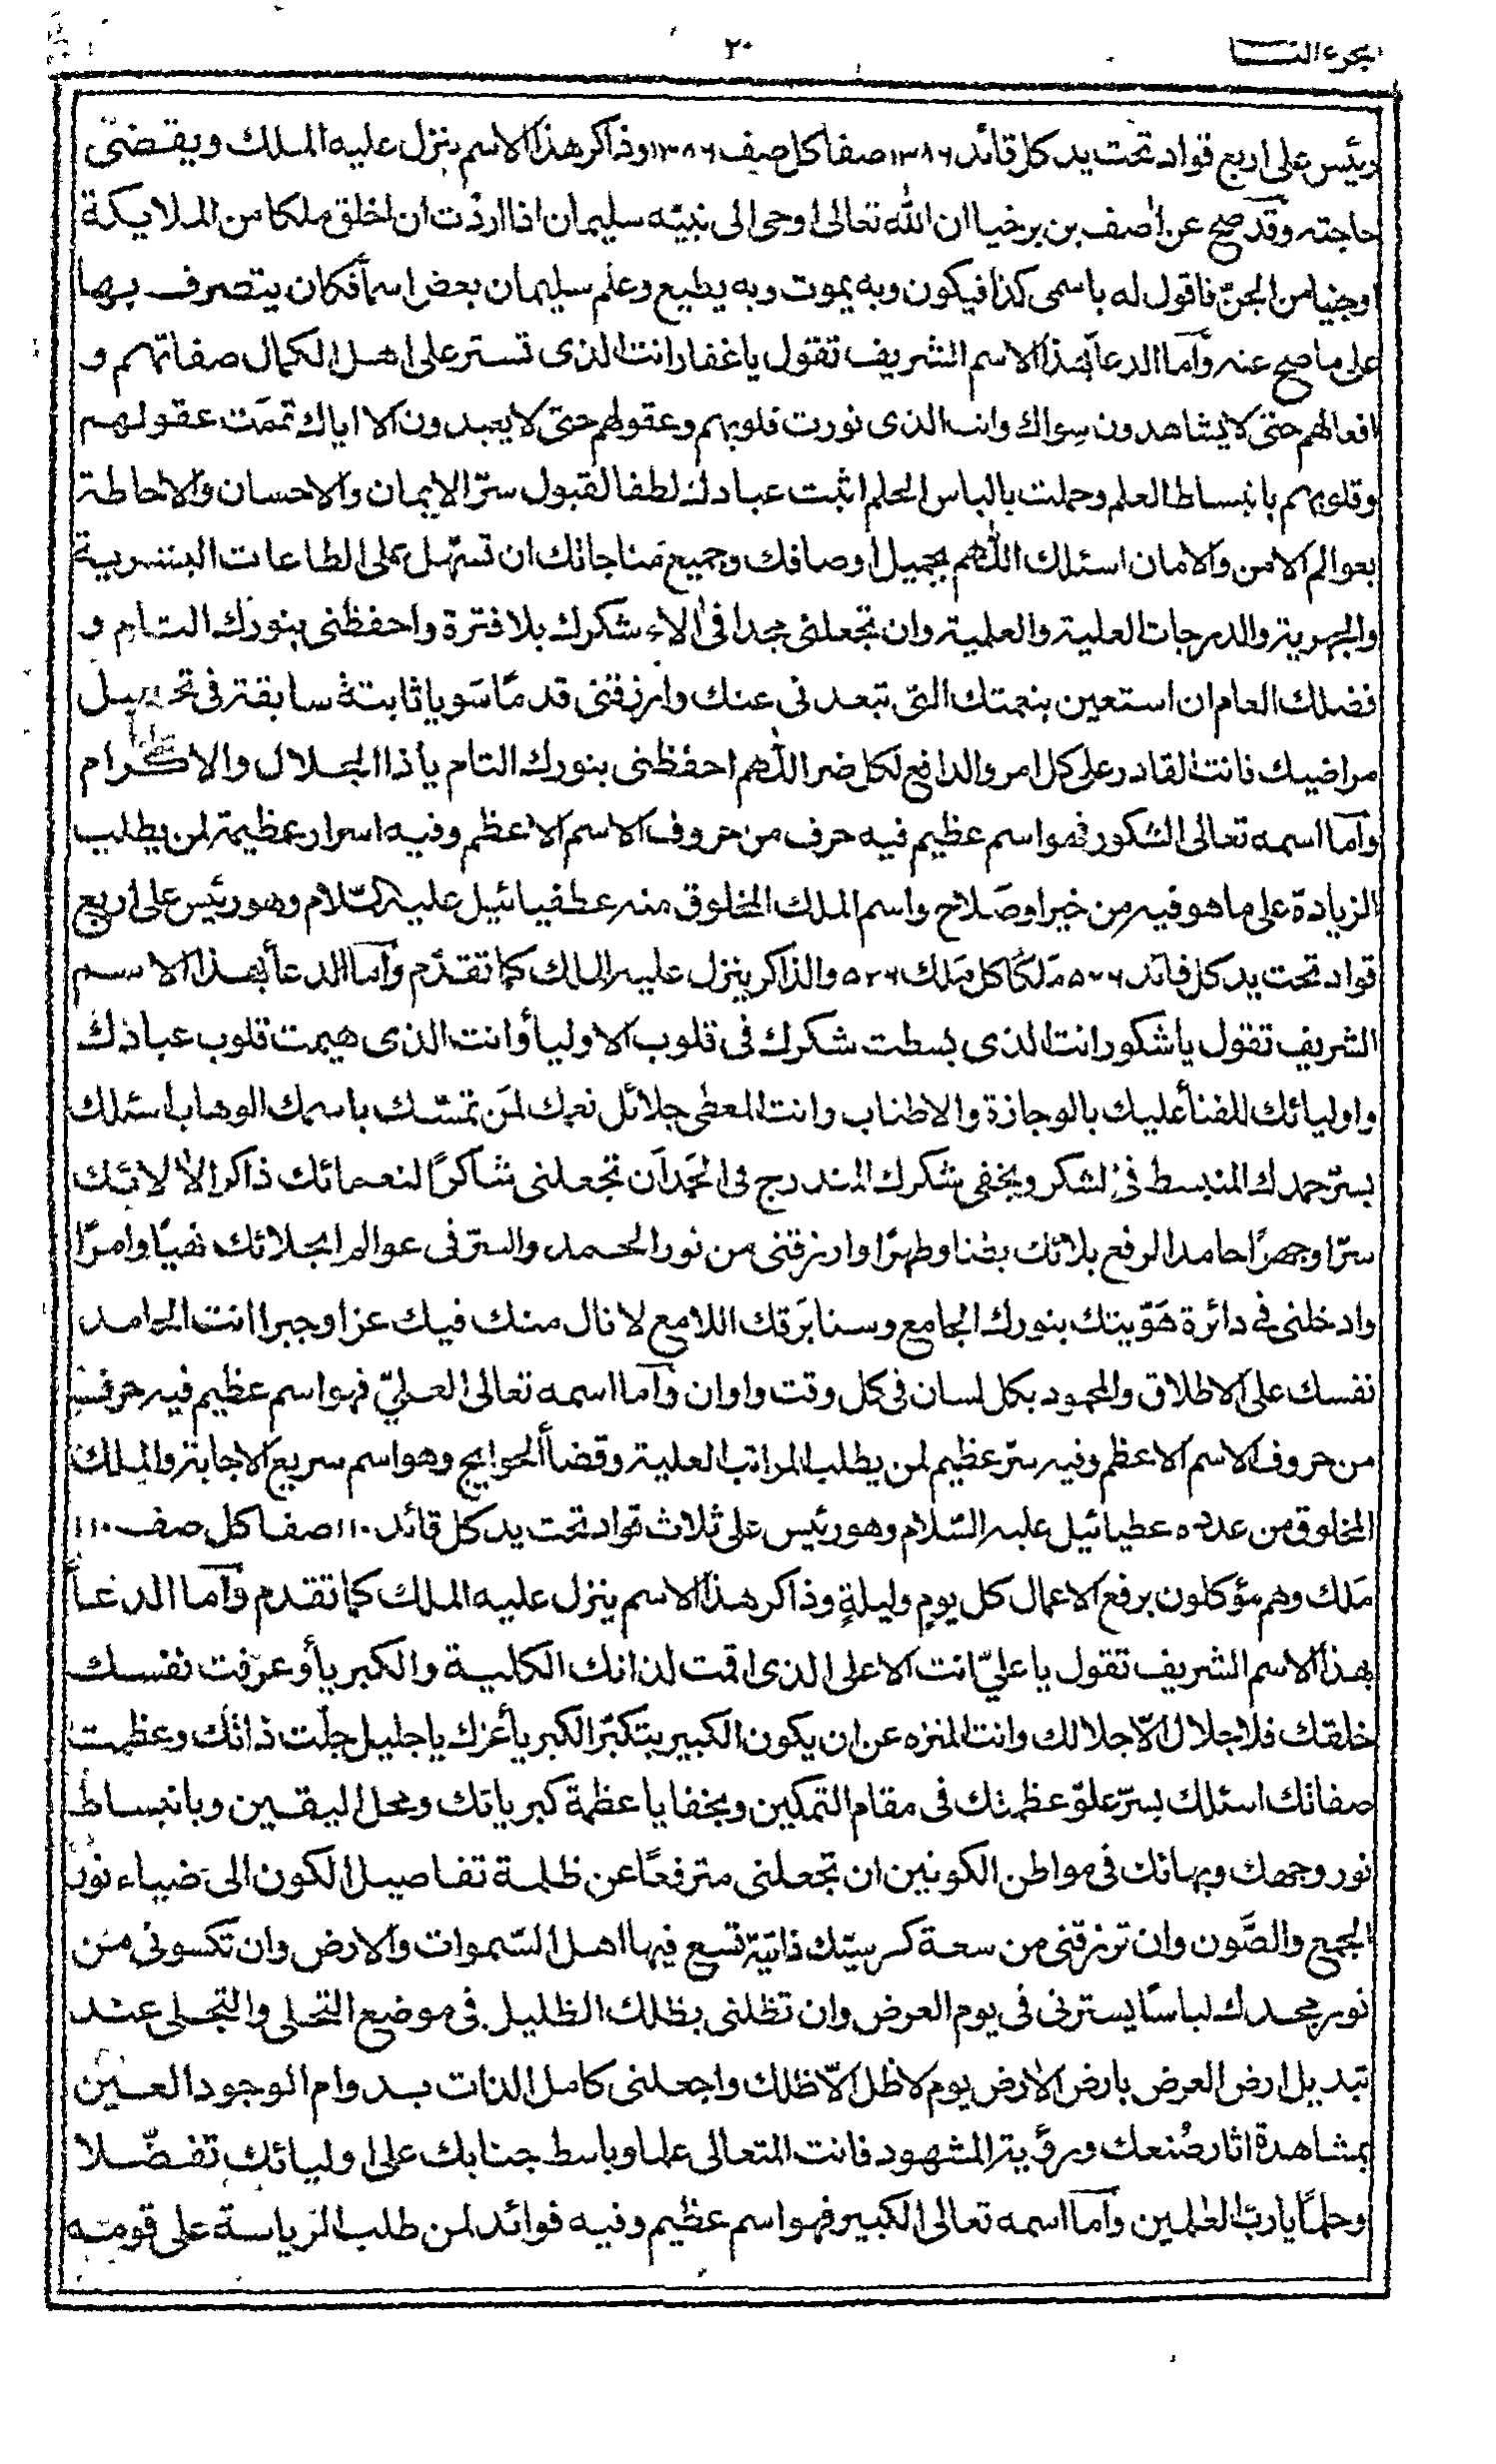 ٢٠
رئيس على اربع قواد تحت يد كل قائد ١٣٨٦ صفا كل صف ١٣٨٦ وذاكر هذا الاسم ينزل عليه الملك ويقضى
حاجته وقد صح عن اٰصف بن برخيا ان الله تعالى اوحى الى نبيّه سليمان اذا اردت ان اخلق ملكا من الملايكة
اوجنيا من الجنّ فاقول له باسمى كذا فيكون وبه يموت وبه يطيع وعلم سليمان بعض اسمأ فكان يتصرف بها
على ما صح عنه وأما الدعأ بهذا الاسم الشريف تقول ياغفار انت الذى تستر على اهل الكمال صفاتهم و
افعالهم حتى لا يشاهدون سواك وانت الذى نورت قلوبهم وعقولهم حتى لا يعبدون الا اياك تممت عقولهم
وقلوبهم بانبساط العلم وحملت بالباس الحلم اثبت عبادك لطفا لقبول سرّ الايمان والاحسان والاحاطة
بعوالم الامن والامان اسئلك اللهم بجميل اوصافك وجميع مناجاتك ان تسهل على الطاعات البشرية
والجهرية والدرجات العلية والعلمية وان تجعلنى مجدا فى الاء شكرك بلا فترة واحفظنى بنورك التام و
فضلك العام ان استعين بنعمتك التى تبعدنى عنك وارزقنى قدمًا سَويا ثابتة سابقة فى
مراضيك فانت القادر على كل امر والدافع لكل ضر اللهم احفظنى بنورك التام ياذا الجلال والاكرام
وأما اسمه تعالى الشكور فهو اسم عظيم فيه حرف من حروف الاسم الاعظم وفيه اسرار عظيمة لمن يطلب
الزيادة على ما هو فيه من خير اوصَلاح واسم الملك المخلوق منه عطفيائيل عليه السّلام وهو رئيس على اربع
قواد تحت يد كل قائد ٥٢٦ مَلكا كل مَلك ٥٢٦ والذاكر ينزل عليه الملك كما تقدّم وأما الدعأ بهذا الاسم
الشريف تقول ياشكور انت الذى بسطت شكرك فى قلوب الاوليأ وانت الذى هيمت قلوب عبادك
واوليائك للثنأ عليك بالوجازة والاطناب وانت المعطى جلائل نعمك لمَن تمسّك باسمك الوهاب اسئلك
بسرّ حمدك المنبسط فى الشكر وبخفى شكرك المندرج فى الحَمد اَن تجعلنى شاكرًا لنعمائك ذاكرا لالائك
سرّا وجهرًا حامدا لرفع بلائك بطنا وظهرًا وارزقنى من نور الحمد والسرّ فى عوالم اجلائك نهيًا وامرًا
وادخلنى فى دائرة هَوّيتك بنورك الجامع وسنا بَرقك اللامع لانال منك فيك عزا وجبرا انت الحامد
نفسك على الاطلاق والمحمود بكل لسان فى كل وقت واوان وأما اسمه تعالى العلىّ فهو اسم عظيم فيه حرف
من حروف الاسم الاعظم وفيه سرّ عظيم لمن يطلب المراتب العلية وقضأ الحوايج وهو اسم سريع الاجابة والملك
المخلوق من عدده عطيائيل عليه السّلام وهو رئيس على ثلاث قواد تحت يد كل قائد ١١٠ صفا كل صف ١١٠
مَلك وهم مؤكلون برفع الاعمال كل يومٍ وليلةٍ وذاكر هذا الاسم ينزل عليه الملك كما تقدم وأما الدعأ
بهذا الاسم الشريف تقول ياعلىّ انت الاعلى الذى اقمت لذاتك الكلية والكبريأ وعرّفت نفسك
خلقك فلا جلال الاّ جلالك وانت المنزه عن ان يكون الكبير بتكبّر الكبريأ عزك ياجليل جلّت ذاتك وعظمت
صفاتك اسئلك بسرّ علوّ عظمتك فى مقام التمكين وبخفايا عظمة كبريائك ومحل اليقين وبانبساط
نور وجهك وبهائك فى مواطن الكونين ان تجعلنى مترفعًا عن ظلمة تفاصيل الكون الى ضياء نور
الجمع والصَّون وان ترزقنى من سعة كرسيّك ذاتيّة تسع فيها اهل السّموات والارض وان تكسونى من
نور مجدك لباسًا يسترنى فى يوم العرض وان تظلنى بظلك الظليل فى موضع التحلى والتجلى عند
تبديل ارض العرض بارض الارض يوم لا ظل الاّ ظلك واجعلنى كامل الذات بدوام الوجود العين
بمشاهدة اثار صُنعك ورؤية المشهود فانت المتعالى علما وباسط جنابك على اوليائك تفضّلا
وحلمًا يارب العٰلمين وأما اسمه تعالى الكبير فهو اسم عظيم وفيه فوائد لمن طلب الرياسة على قومه